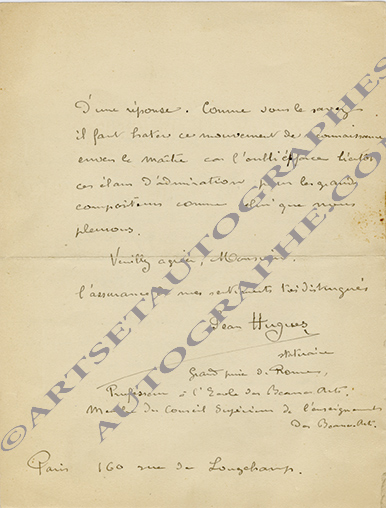 D'une réponse. Comme vous le savez
il faut hater ce mouvement de reconnaissance
envers le maître car l'oubli efface bientôt
ces élans d'admiration pour les grands
compositeurs comme celui que nous
pleurons.
Veuillez agréer, Monsieur,
l'assurance de mes sentiments très distingués
Jean Hugues
statuaire
Grand prix de Rome,
Professeur à l'Ecole des Beaux-Arts.
Membre du Conseil Supérieur de l'enseignement
des Beaux-Arts.
Paris 160 rue de Longchamp.
©ARTSETAUTOGRAPHES
AUTOGRAPHE.COM